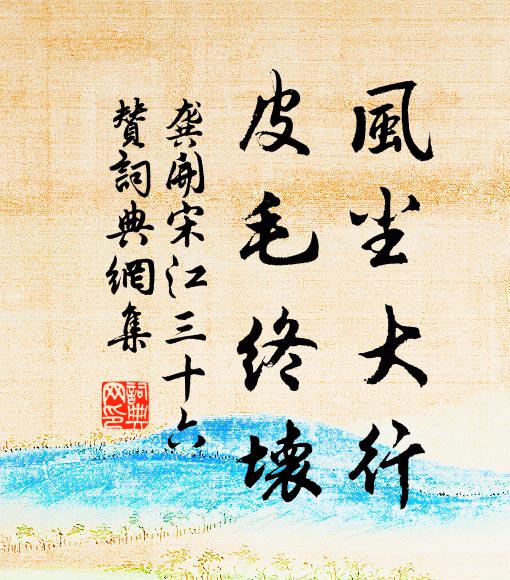 風尘大行
皮毛終壞
龚開宋江三十六
賛詞典網集
詞典网印